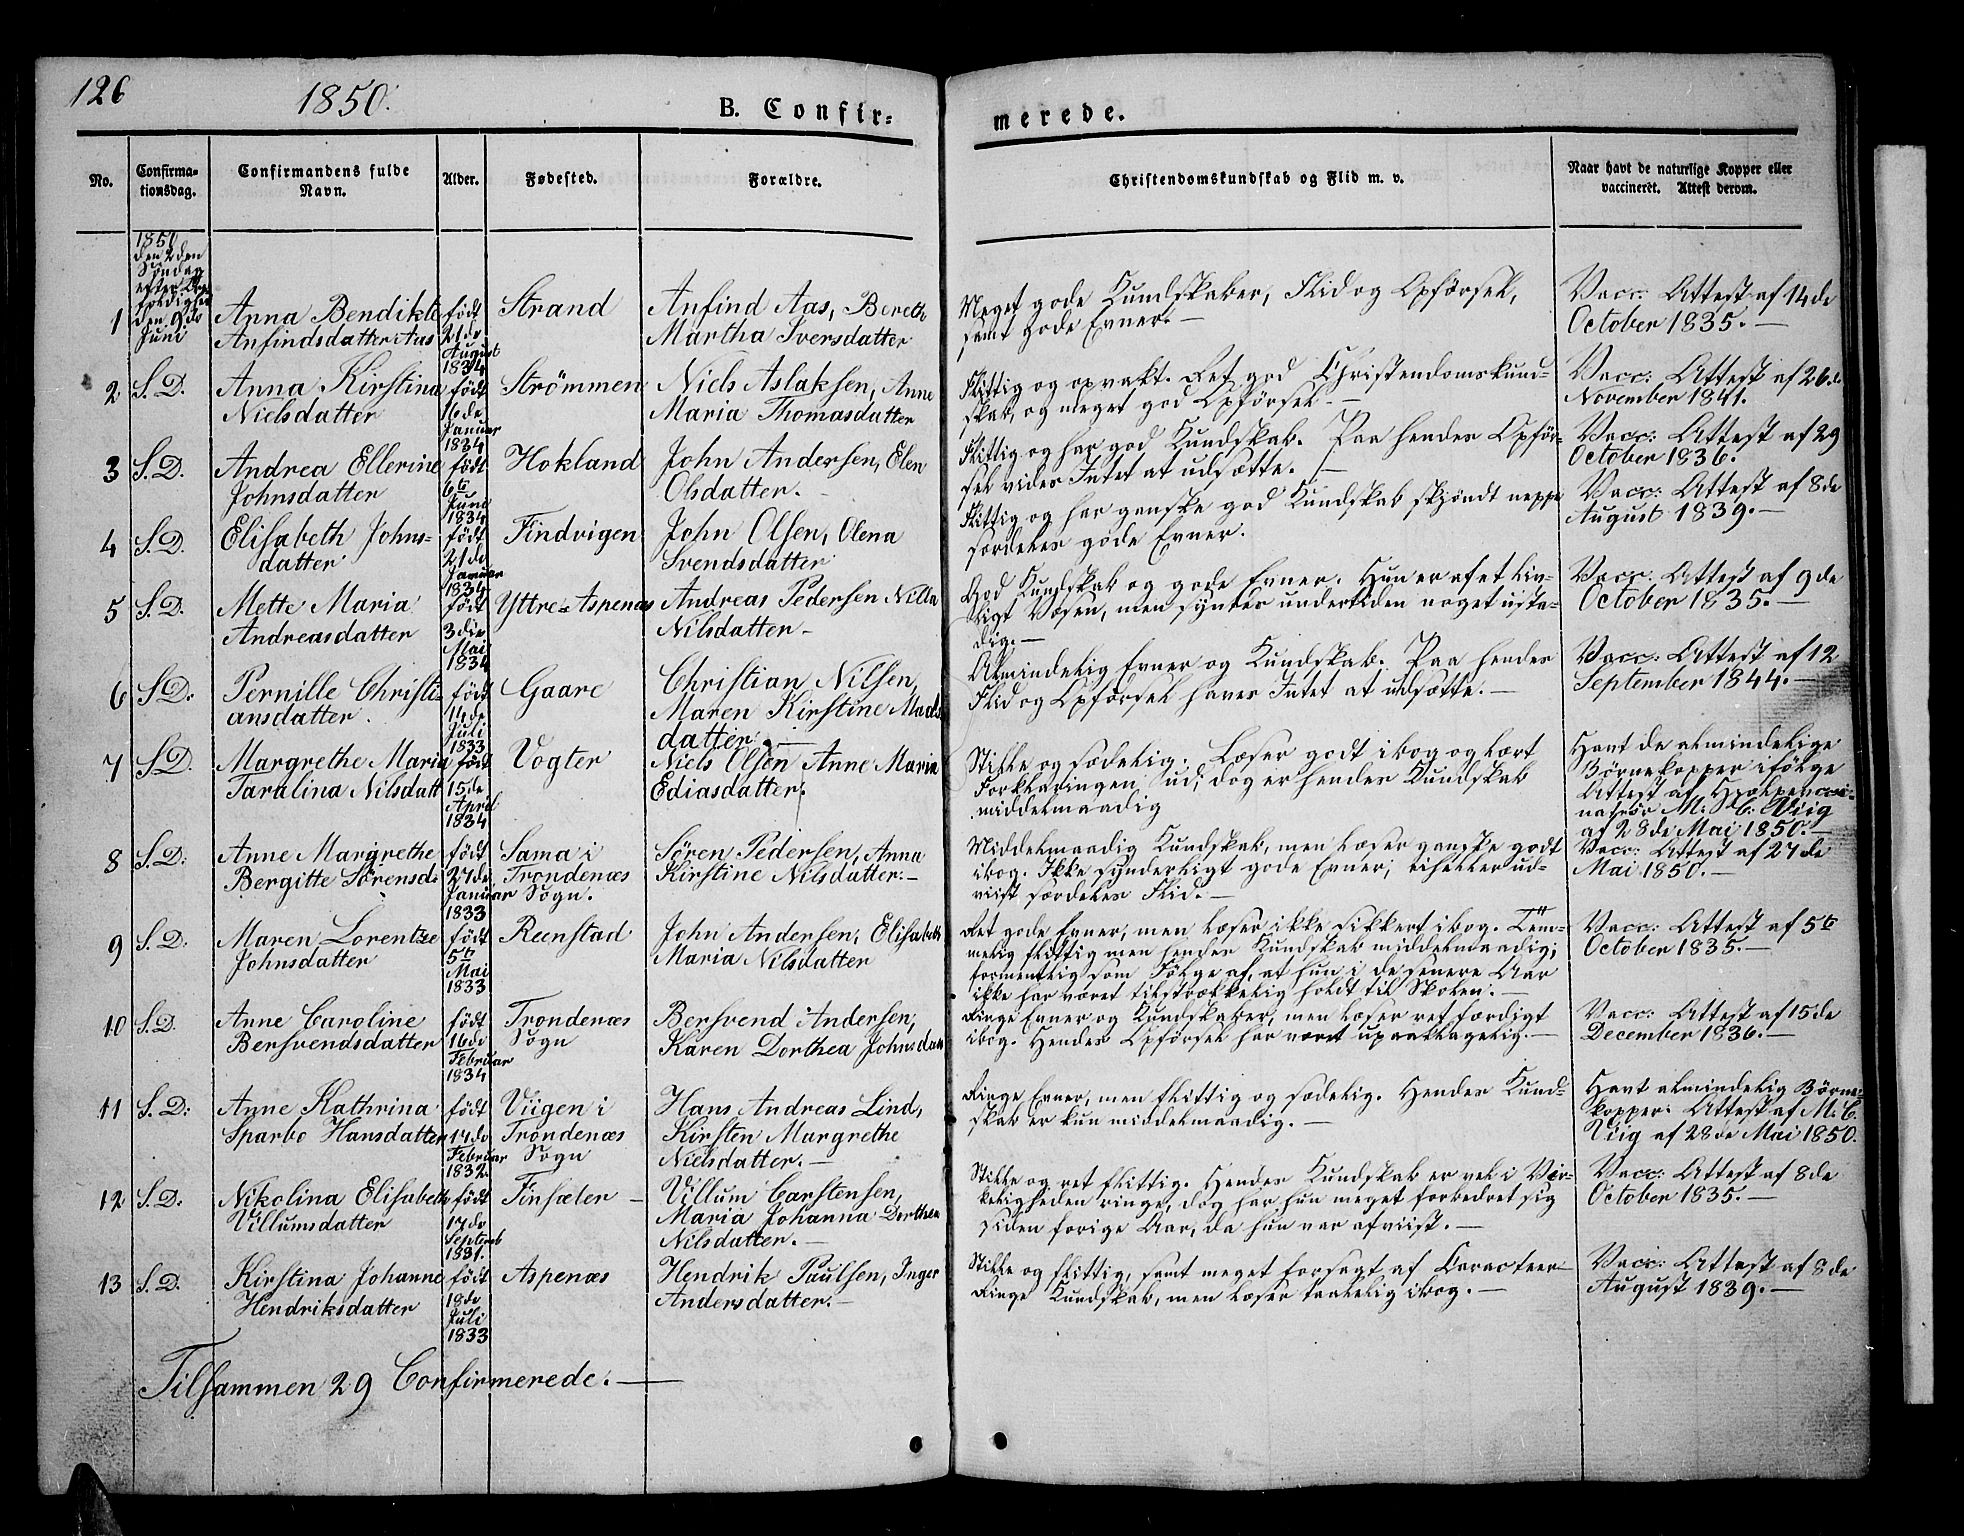 126
1850.
B. Confir-
merede.
No.
Confirma-
tionsdag.
Confirmandens fulde
Navn.
Alder.
Fødested.
Forældre.
Christendomskundskab og Flid m. v.
Naar havt de naturlige Kopper eller
vaccineret. Attest derom.
1850
den 2den
Søndag
efter
den 9de
Juni
1
Anna Bendikte
Anfindsdatter Aas
født
21de
August
1834
Strand
Anfind Aas, Bereth
Martha Iversdatter
Meget gode Kundskaber, Flid og Opførsel,
samt gode Evner.—
Vacc: Attest af 14de
October 1835.—
2
S. D.
Anna Kirstina
Nielsdatter
født
16de
Januar
1834
Strömmen
Niels Aslaksen, Anne
Maria Thomasdatter
Flittig og opvakt. Ret god Christendomskund-
skab, og meget god Opførsel.—
Vacc: Attest af 26de
November 1841.
3
S. D.
Andrea Ellerine
Johnsdatter
født
6te
Juni
1834
Hokland
John Andersen, Elen
Olsdatter.
Flittig og har god Kundskab. Paa hendes Opfør-
sel vides Intet at udsætte.
Vacc: Attest af 29
October 1836.
4
S. D.
Elisabeth Johns-
datter
født
21de
Januar
1834
Findvigen
John Olsen, Olena
Svendsdatter
Flittig og har ganske god Kundskab skjøndt neppe
særdeles gode Evner.
Vacc: Attest af 8de
August 1839.—
5
S. D.
Mette Maria
Andreasdatter
født
3die
Mai
1834
Yttre-Aspenæs
Andreas Pedersen Nilla
Nilsdatter—
God Kundskab og gode Evner. Hun er af et liv-
ligt Væsen, men synes undertiden noget usta-
dig.—
Vacc. Attest af 9de
October 1835.—
6
S. D:
Pernille Christi-
ansdatter.
født
14de
Juli
1833
Gaare
Christian Nilsen,
Maren Kirstine Mads
datter.—
Almindelig Evner og Kundskab. Paa hendes
Flid og Opførsel haves Intet at udsætte.—
Vacc: Attest af 12
September 1844.—
7
S. D.
Margrethe Maria
Taralina Nilsdatt
født
15de
April
1834
Vogter
Niels Olsen Anne Maria
Ediasdatter.
Stille og sædelig. Læser godt ibog og lært
Forklaringen ud; dog er hendes Kundskab
middelmaadig
Havt de almindelige
Børnekopper ifølge
Attest af Hjælpevacci-
nateur M: C. Viig
af 28de Mai 1850.—
8
S. D:
Anne Margrethe
Bergitte Sörensd:
født
27de
Januar
1833
Sama i
Trondenæs
Sogn.
Sören Pedersen, Anna
Kirstine Nilsdatter.—
Middelmaadig Kundskab, men læser ganske godt
ibog. Ikke synderligt gode Evner; eiheller ud-
viist særdeles Flid.—
Vacc: Attest af 27de
Mai 1850.—
9
S. D:
Maren Lorentze
Johnsdatter
født
5te
Mai
1833
Reenstad
John Andersen, Elisabeth
Maria Nilsdatter
Ret gode Evner, men læser ikke sikkert ibog. Tem-
melig flittig men hendes Kundskab middelmaadig;
formentlig som Følge af, at hun i de senere Aar
ikke har været tilstrækkelig holdt til Skolen.—
Vacc: Attest af 5te
October 1835.—
10
S. D.
Anne Caroline
Bersvendsdatter
født
16de
Februar
1834
Trondenæs
Sogn
Bersvend Andersen,
Karen Dorthea Johnsdatt
Ringe Evner og Kundskaber, men læser ret færdigt
ibog. Hendes Opførsel har været upaaklagelig.—
Vacc: Attest af 15de
December 1836.—
11
S. D:
Anne Kathrina
Sparbo Hansdatter
født
17de
Februar
1832
Viigen i
Trondenæs
Sogn
Hans Andreas Lind,
Kirsten Margrethe
Nielsdatter.—
Ringe Evner, men flittig og sædelig. Hendes Kund-
skab er kun middelmaadig.—
Havt almindelig Børne-
kopper: Attest af M: C.
Viig af 28de Mai 1850.
12
S. D:
Nikolina Elisabeth
Villumsdatter
født
17de
Septemb
1831.
Finsæter—
Villum Carstensen,
Maria Johanna Dorthea
Nilsdatter.—
Stille og ret flittig. Hendes Kundskab er vel i Vir-
keligheden ringe, dog har hun meget forbedret sig
siden forige Aar, da hun var afviist.—
Vacc: Attest af 8de
October 1835.—
13
S. D.
Kirstina Johanne
Hendriksdatter
født
18de
Juli
1833
Aspenæs
Hendrik Paulsen, Inger
Andersdatter.—
Stille og flittig, samt meget forsagt af Caracteer.
Ringe Kundskab, men læser taalelig ibog.—
Vacc: Attest af 8de
August 1839.—
Tilsammen 29 Confirmerede.—